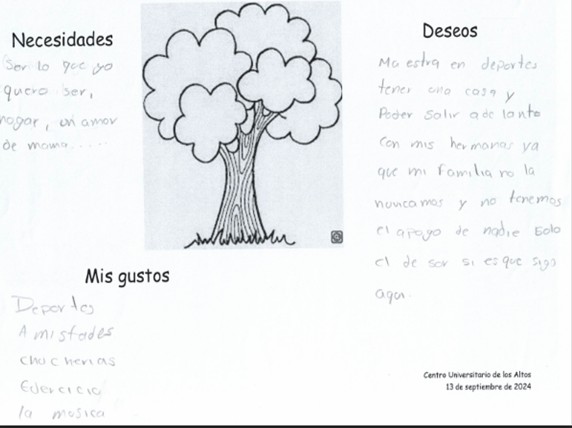 Necesidades
Ser lo que yo
quero ser,
hogar, un amor
de mama.....
Deseos
Maestra en deportes
tener una casa y
Poder salir adelante
con mis hermanas ya
que mi familia no la
nouncamos y no tenemos
el apoyo de nadie solo
el de sor si es que sigo
aqui.
Mis gustos
Deportes
Amistades
chucherias
Ejercicio
la musica
Centro Universitario de los Altos
13 de septiembre de 2024